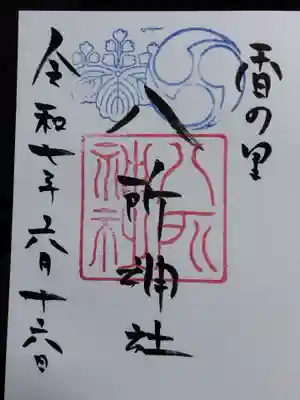 香の里
八所神社
令和七年六月十六日
八所
神社